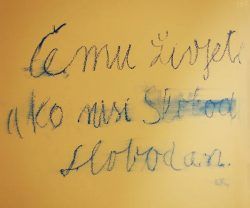 Čemu živjeti
ako nisi Slobod
slobodan.